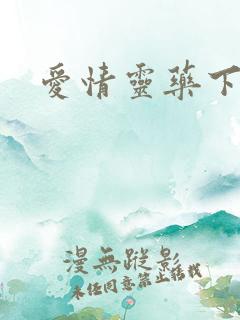 愛情靈藥下
漫無蹤影
未经同意禁止转载